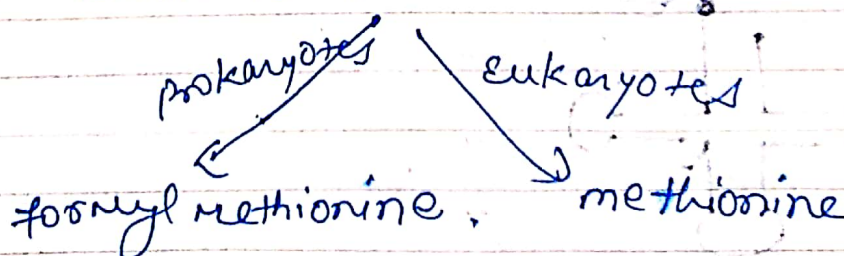 prokaryotes Eukaryotes
formyl methionine. methionine